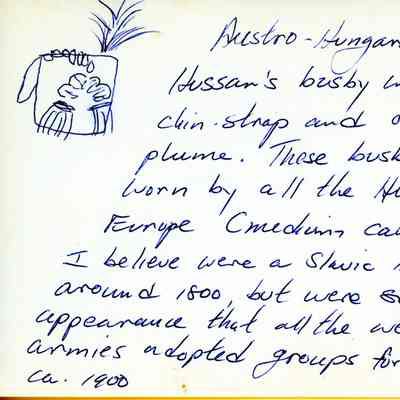 Austro-Hungar
Hussar's busby w
chin-strap and
plume. These busb
worn by all the H
Europe (medium ca
I believe were a Slavic
around 1800, but were s
appearance that all the we
armies adopted groups for
ca. 1900